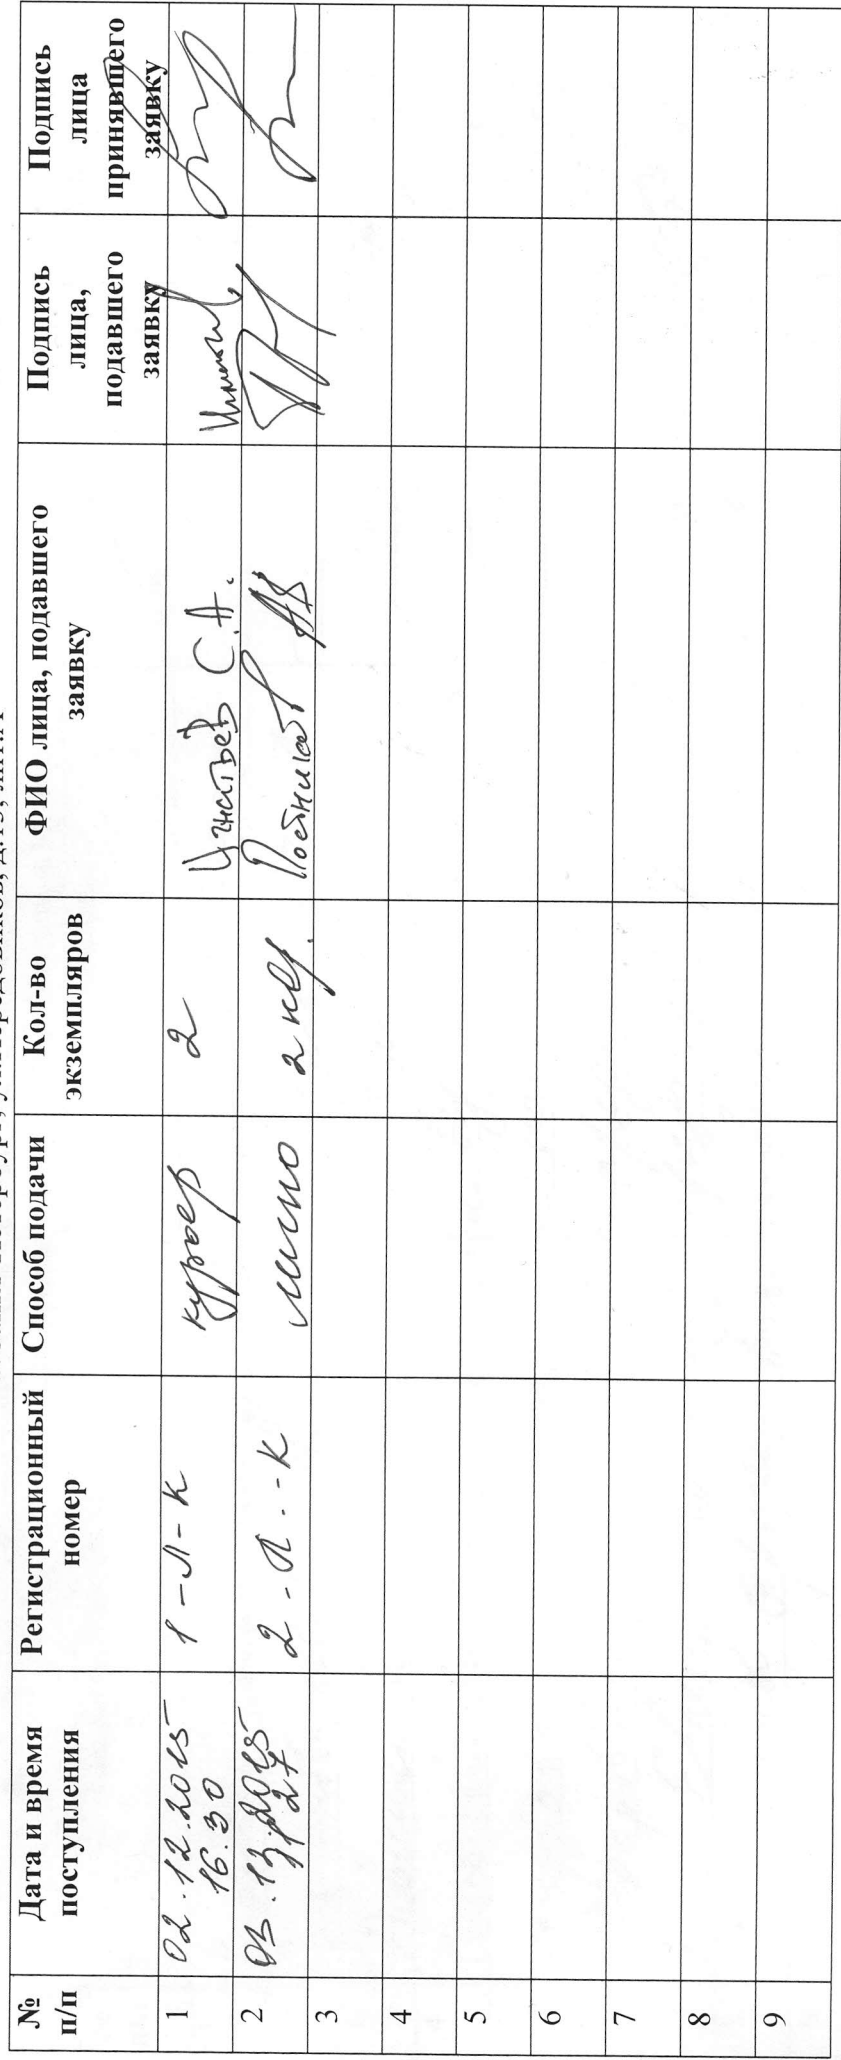 № п/п | Дата и время поступления | Регистрационный номер | Способ подачи | Кол-во экземпляров | ФИО лица, подавшего заявку | Подпись лица, подавшего заявку | Подпись лица принявшего заявку
1 | 02.12.2015 16.30 | 1-Л-К | курьер | 2 | С.А.
2 | 2-Л-К | лично | 2
3
4
5
6
7
8
9